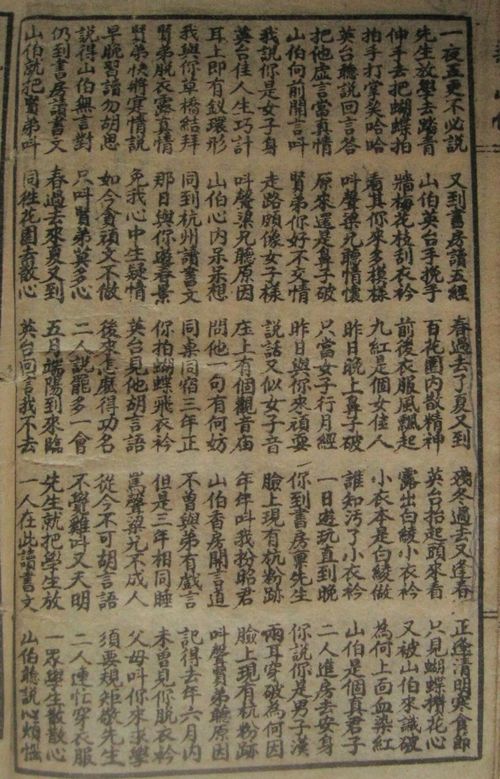 一夜五更不必說 又到書房讀五經 春過去了夏又到 殘冬過去又逢春 正逢清明寒食節
先生放學去踏青 山伯英台手挽手 百花園內散精神 英台抬起頭來看 只見蝴蝶攢花心
伸手去把蝴蝶拍 牆梅花枝刮衣衿 前後衣服風飄起 露出白綾小衣衿 又被山伯來識破
拍手打掌笑哈哈 看其你來多模樣 九紅是個女佳人 小衣本是白綾做 為何上面血染紅
英台聽說回言答 叫聲梁兄聽情懷 昨日晚上鼻子破 誰知污了小衣衿 山伯是個真君子
把他虛言當真情 原來還是鼻子破 只當女子行月經 一日遊玩直到晚 二人進房去安身
山伯何前開言叫 賢弟你好不交情 昨日與你來頑耍 你到書房稟先生 你說你是男子漢
我說你是女子身 走路頗像女子樣 說話又似女子音 臉上現有杭粉跡 兩耳穿破為何因
英台佳人生巧計 叫聲梁兄聽原因 庄上有個觀音廟 年年叫我扮昭君 臉上現有杭粉跡
耳上即有釵環形 山伯心內呆呆想 問他一句有何妨 山伯書房開言道 叫聲賢弟聽原因
我與你草橋結拜 同到杭州讀書文 同桌同宿三年正 不曾與弟有戲言 記得去年六月內
賢弟脫衣露真情 那日與你遊春景 你拍蝴蝶飛衣衿 但是三年相同睡 未曾見你脫衣衿
賢弟快將實情說 免我心中生疑情 英台見他胡言語 罵聲梁兄不成人 父母叫你來求學
早晚習讀勿胡思 如今貪頑文不做 後來怎麽得功名 從今不可胡言語 須要規矩敬先生
說得山伯無言對 只叫賢弟莫多心 二人說罷多一會 不覺雞叫又天明 二人連忙穿衣服
仍到書房讀書文 春過去來夏又到 五月端陽到來臨 先生就把學生放 一眾學生散散心
山伯就把賢弟叫 同往花園去散心 英台回言我不去 一人在此讀書文 山伯聽說心煩惱